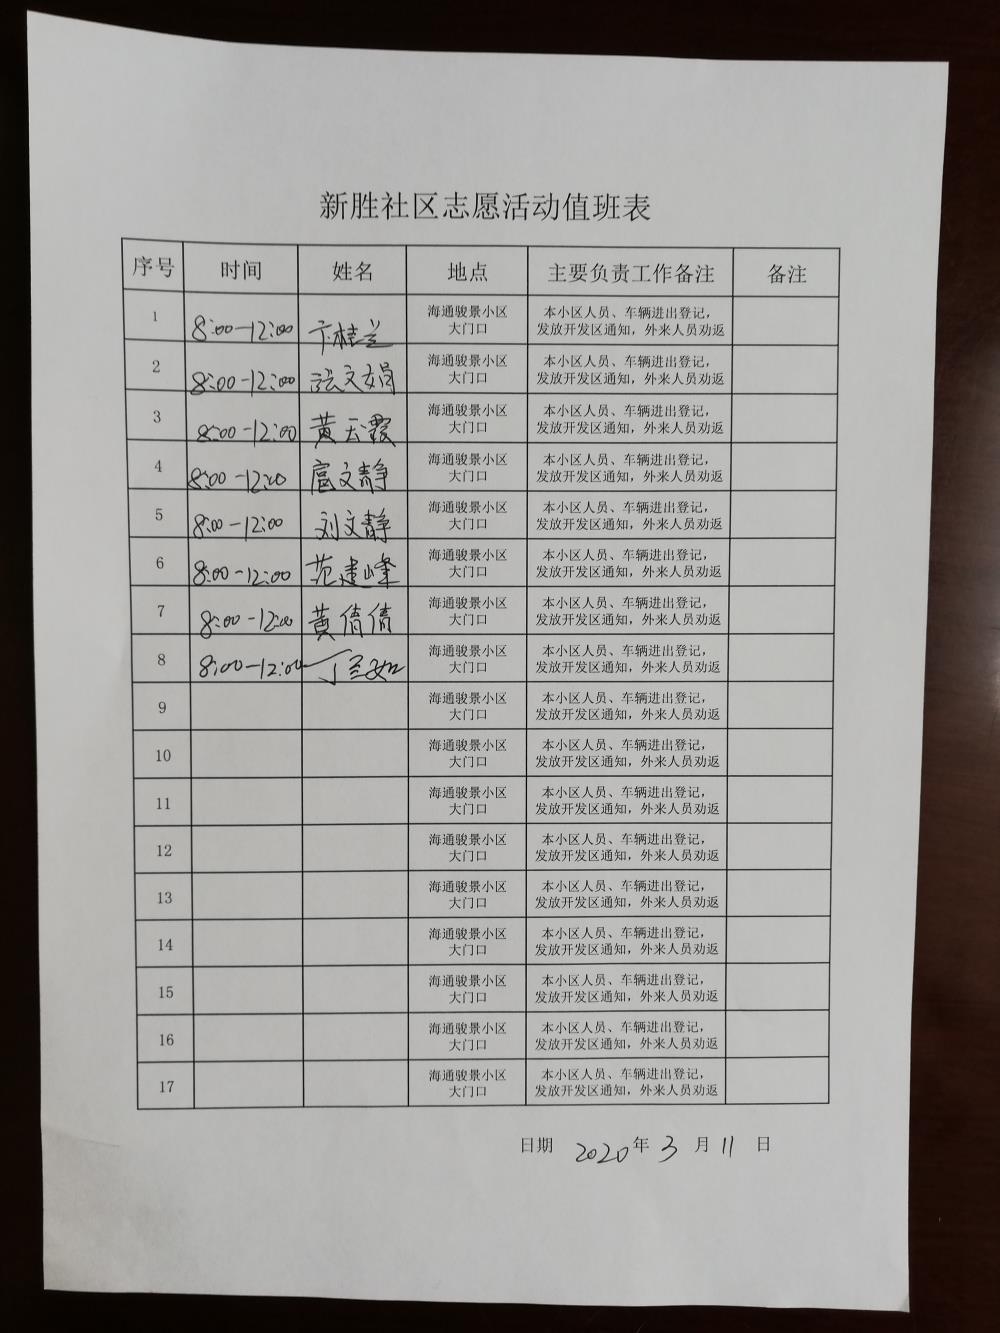 新胜社区志愿活动值班表
序号 时间 姓名 地点 主要负责工作备注 备注
1 8:00-12:00 卞桂兰 海通骏景小区 本小区人员、车辆进出登记，
大门口 发放开发区通知，外来人员劝返
2 8:00-12:00 张文娟 海通骏景小区 本小区人员、车辆进出登记，
大门口 发放开发区通知，外来人员劝返
3 8:00-12:00 黄云霞 海通骏景小区 本小区人员、车辆进出登记，
大门口 发放开发区通知，外来人员劝返
4 8:00-12:00 文静 海通骏景小区 本小区人员、车辆进出登记，
大门口 发放开发区通知，外来人员劝返
5 8:00-12:00 刘文静 海通骏景小区 本小区人员、车辆进出登记，
大门口 发放开发区通知，外来人员劝返
6 8:00-12:00 范建峰 海通骏景小区 本小区人员、车辆进出登记，
大门口 发放开发区通知，外来人员劝返
7 8:00-12:00 黄倩倩 海通骏景小区 本小区人员、车辆进出登记，
大门口 发放开发区通知，外来人员劝返
8 8:00-12:00 丁兰如 海通骏景小区 本小区人员、车辆进出登记，
大门口 发放开发区通知，外来人员劝返
9 海通骏景小区 本小区人员、车辆进出登记，
大门口 发放开发区通知，外来人员劝返
10 海通骏景小区 本小区人员、车辆进出登记，
大门口 发放开发区通知，外来人员劝返
11 海通骏景小区 本小区人员、车辆进出登记，
大门口 发放开发区通知，外来人员劝返
12 海通骏景小区 本小区人员、车辆进出登记，
大门口 发放开发区通知，外来人员劝返
13 海通骏景小区 本小区人员、车辆进出登记，
大门口 发放开发区通知，外来人员劝返
14 海通骏景小区 本小区人员、车辆进出登记，
大门口 发放开发区通知，外来人员劝返
15 海通骏景小区 本小区人员、车辆进出登记，
大门口 发放开发区通知，外来人员劝返
16 海通骏景小区 本小区人员、车辆进出登记，
大门口 发放开发区通知，外来人员劝返
17 海通骏景小区 本小区人员、车辆进出登记，
大门口 发放开发区通知，外来人员劝返
日期 2020年3月11日